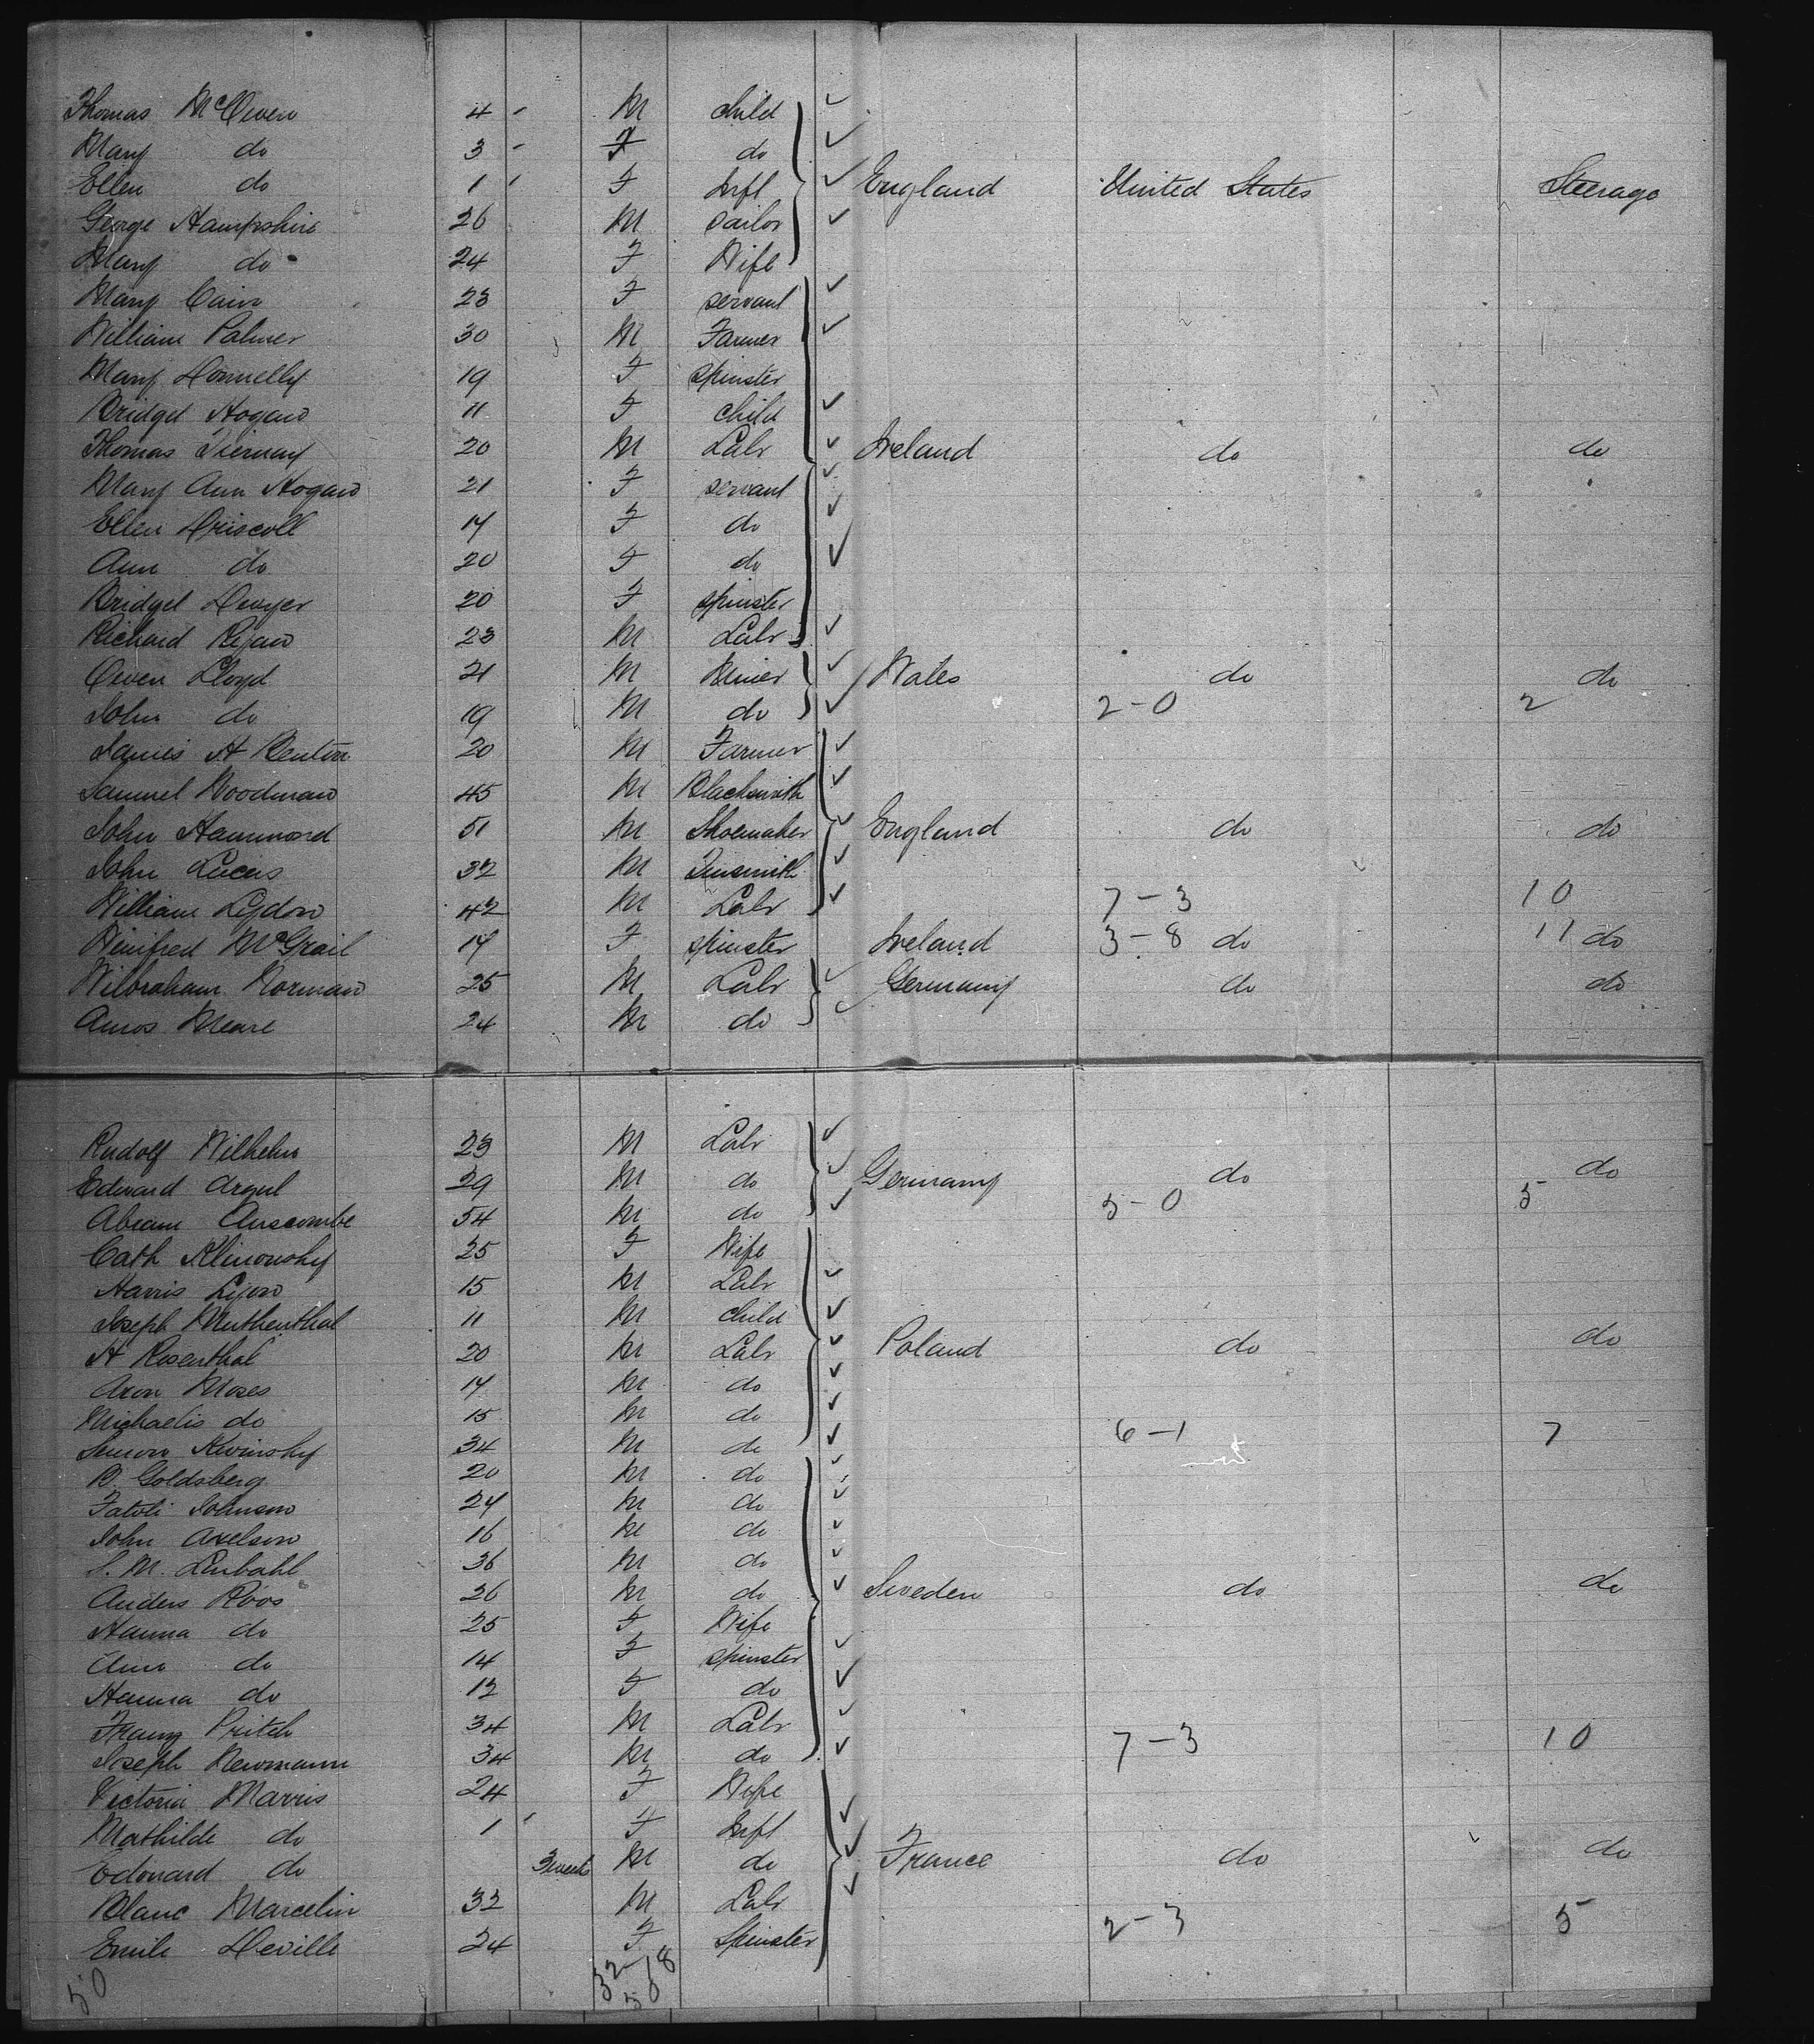 Thomas McOwen 4 M child
Mary do 3 F do
Ellen do 1 F Inft England United States Steerage
George Hampshire 26 M sailor
Mary do 24 F Wife
Mary Cain 23 F servant
William Palmer 30 M Farmer
Mary Donnelly 19 F spinster
Bridget Hogan 11 F child
Thomas Tiernay 20 M Labr Ireland do do
Mary Ann Hogan 21 F servant
Ellen Driscoll 17 F do
Ann do 20 F do
Bridget Dwyer 20 F spinster
Richard Ryan 23 M Labr
Owen Lloyd 21 M Miner Wales do do
John do 19 M do 2-0 2
James H Renton 20 M Farmer
Samuel Woodman 45 M Blacksmith
John Hammond 51 M Shoemaker England do do
John Lucas 32 M Tinsmith
William Lydon 42 M Labr 7-3 10
Winifred McGrail 17 F spinster Ireland 3-8 do 11 do
Wilbraham Norman 25 M Labr Germany do do
Amos Meare 24 M do
Rudolf Wilhelm 23 M Labr
Edward 29 M do Germany do do
Abram Anscombe 54 M do 5-0 5
Cath Klinonsky 25 F Wife
Harris Lyon 15 M Labr
Joseph Muthenthal 11 M child
H Rosenthal 20 M Labr Poland do do
Aron Moses 17 M do
Michaelis do 15 M do
Simon 34 M do 6-1 7
B. Goldsberg 20 M do
Johnson 24 M do
John Axelson 16 M do
S. M. 36 M do
Anders Roos 26 M do Sweden do do
Hanna do 25 F Wife
Ann do 14 F spinster
Hanna do 12 F do
Franz Pritch 34 M Labr
Joseph Newmann 34 M do 7-3 10
Victoria Marris 24 F Wife
Mathilde do 1 F Inft
Edouard do 3 weeks M do France do do
Blanc Marcelin 32 M Labr
Emile Deville 24 F Spinster 2-3 5
50 32-18
50